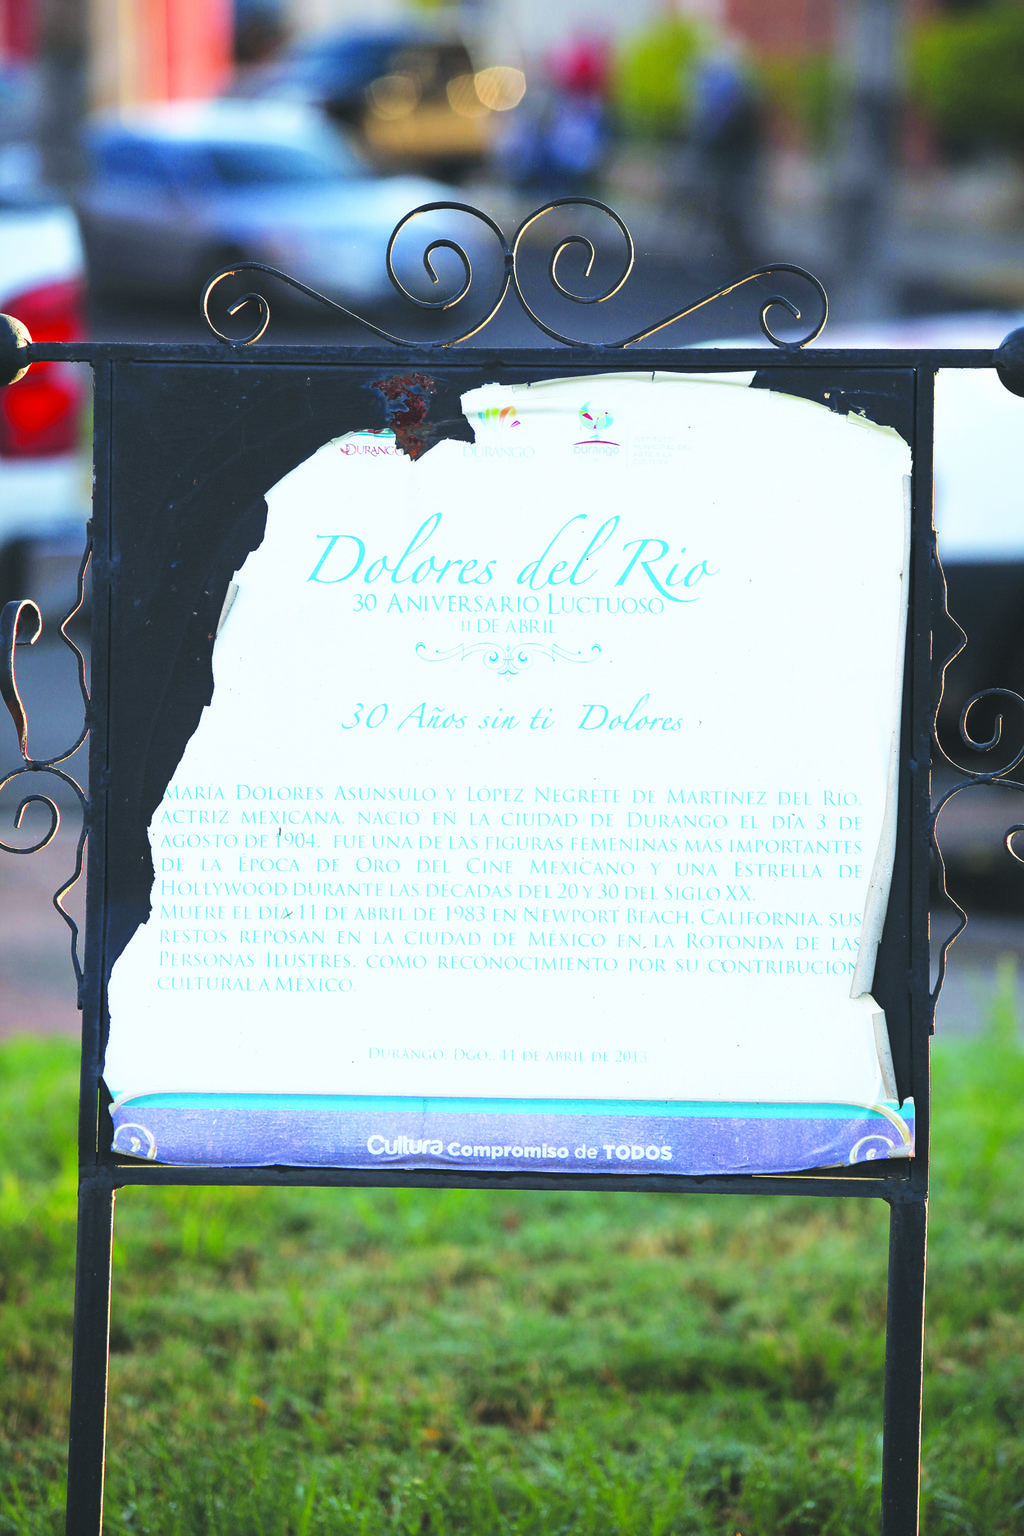 DURANGO
DURANGO
Durango
INSTITUTO
MUNICIPAL DEL
ARTE Y LA
CULTURA
Dolores del Rio
30 ANIVERSARIO LUCTUOSO
11 DE ABRIL
30 Años sin ti Dolores
MARÍA DOLORES ASÚNSULO Y LÓPEZ NEGRETE DE MARTÍNEZ DEL RIO,
ACTRIZ MEXICANA, NACIO EN LA CIUDAD DE DURANGO EL DÍA 3 DE
AGOSTO DE 1904. FUE UNA DE LAS FIGURAS FEMENINAS MAS IMPORTANTES
DE LA ÉPOCA DE ORO DEL CINE MEXICANO Y UNA ESTRELLA DE
HOLLYWOOD DURANTE LAS DECADAS DEL 20 Y 30 DEL SIGLO XX.
MUERE EL DIA 11 DE ABRIL DE 1983 EN NEWPORT BEACH, CALIFORNIA, SUS
RESTOS REPOSAN EN LA CIUDAD DE MÉXICO EN LA ROTONDA DE LAS
PERSONAS ILUSTRES, COMO RECONOCIMIENTO POR SU CONTRIBUCIÓN
CULTURAL A MÉXICO.
DURANGO, DGO., 11 DE ABRIL DE 2013
Cultura Compromiso de TODOS